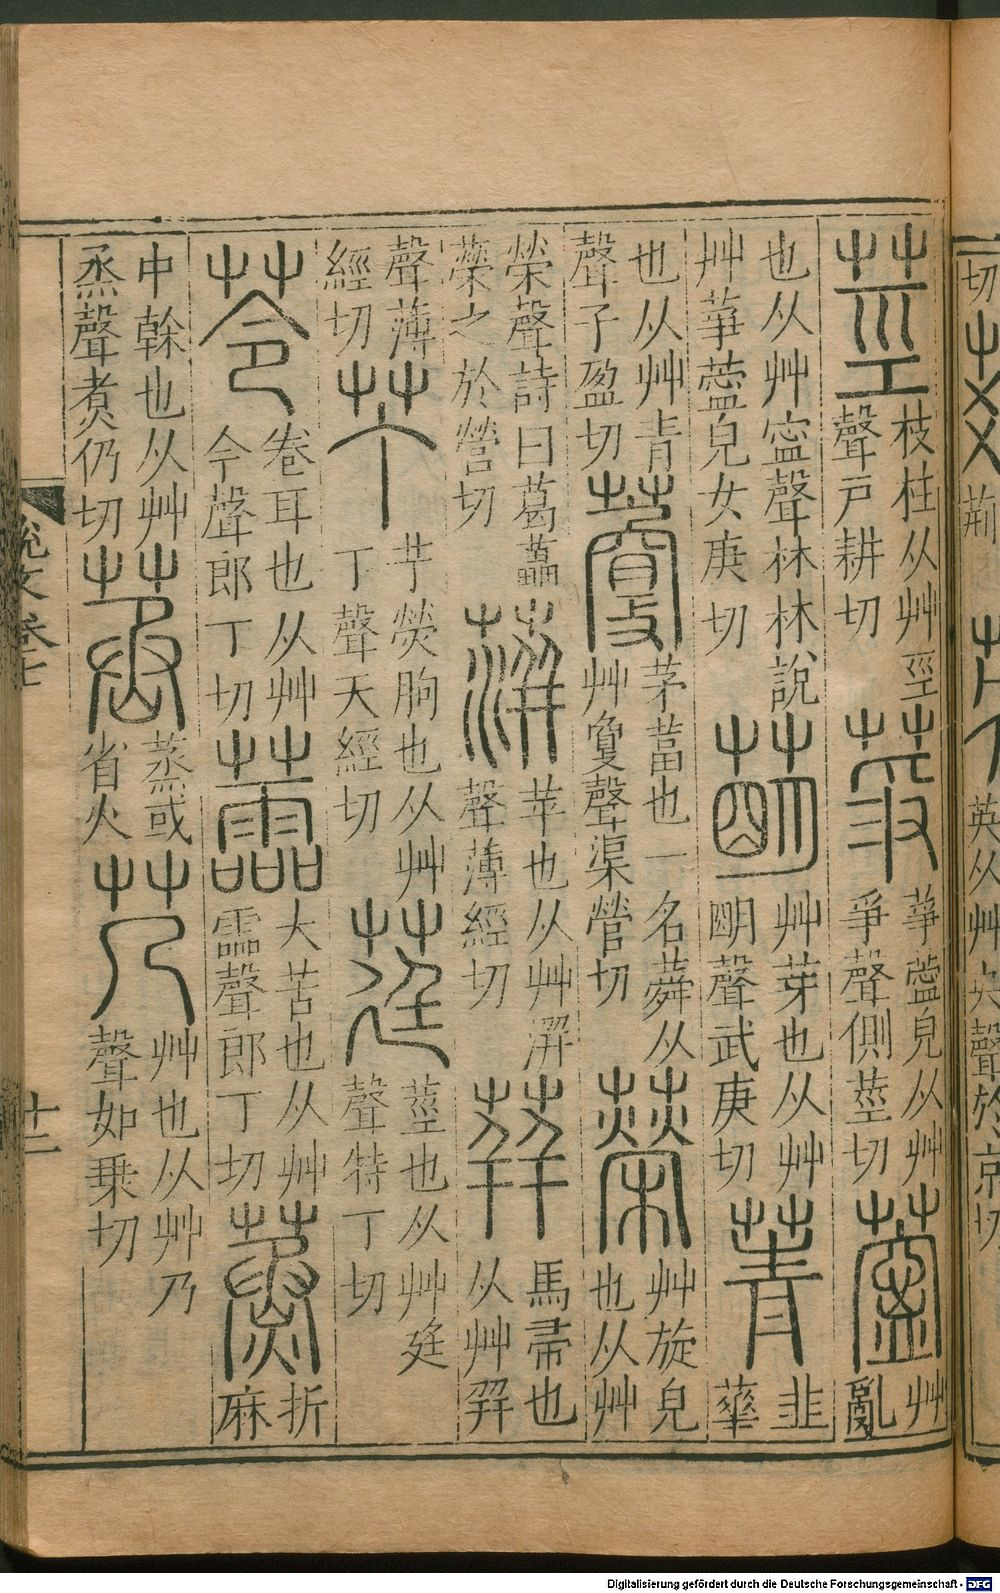 切
荊
英从艸央聲於京切
莖枝柱从艸巠聲戶耕切䓳莘薴皃从艸爭聲側莖切薴艸亂
也从艸寍聲杜林說艸莘薴皃女庚切萌艸芽也从艸朙聲武庚切菁韭華
也从艸青聲子盈切藑茅葍也一名蕣从艸夐聲渠營切䓹艸旋皃也从艸
榮聲詩曰葛藟蘃之於營切蓱苹也从艸洴聲薄經切荓馬帚也从艸幷
聲薄經切艼艼熒朐也从艸丁聲天經切莛莖也从艸廷聲特丁切
苓卷耳也从艸令聲郎丁切蘦大苦也从艸霝聲郎丁切蒸折麻
中榦也从艸烝聲煑仍切𦯓蒸或省火芿艸也从艸乃聲如乗切
說文卷七
十二
Digitalisierung gefördert durch die Deutsche Forschungsgemeinschaft - DFG